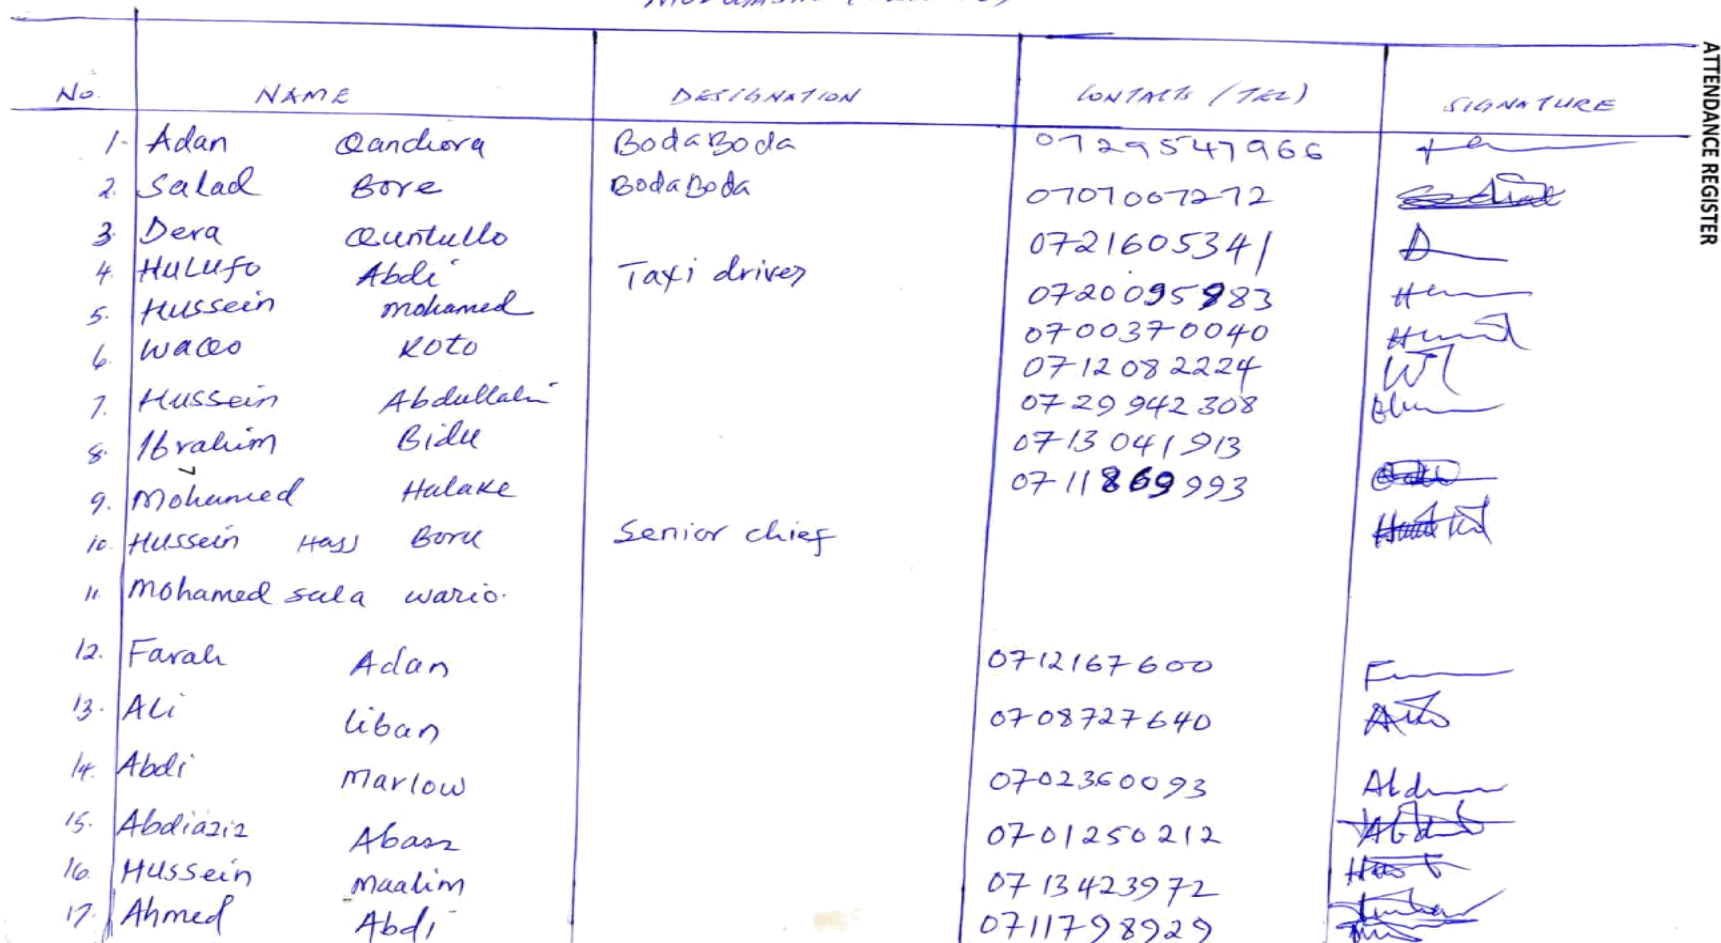 No. NAME DESIGNATION CONTACTS (TEL) SIGNATURE
1. Adan Qanchora BodaBoda 0729547966
2. Salad Bore BodaBoda 0707007272
3. Dera Quntullo 0721605341
4. HULUFO Abdi Taxi driver 0720095983
5. Hussein mohamed 0700370040
6. waco KOTO 0712082224
7. Hussein Abdullahi 0729942308
8. Ibrahim Bidu 0713041913
9. Mohamed Halake 0711869993
10. Hussein Hass Boru Senior chief
11. mohamed sala wario.
12. Farah Adan 0712167600
13. ALi liban 0708727640
14. Abdi marlow 0702360093
15. Abdiaziz Abass 0701250212
16. Hussein maalim 0713423972
17. Ahmed Abdi 0711798929
ATTENDANCE REGISTER